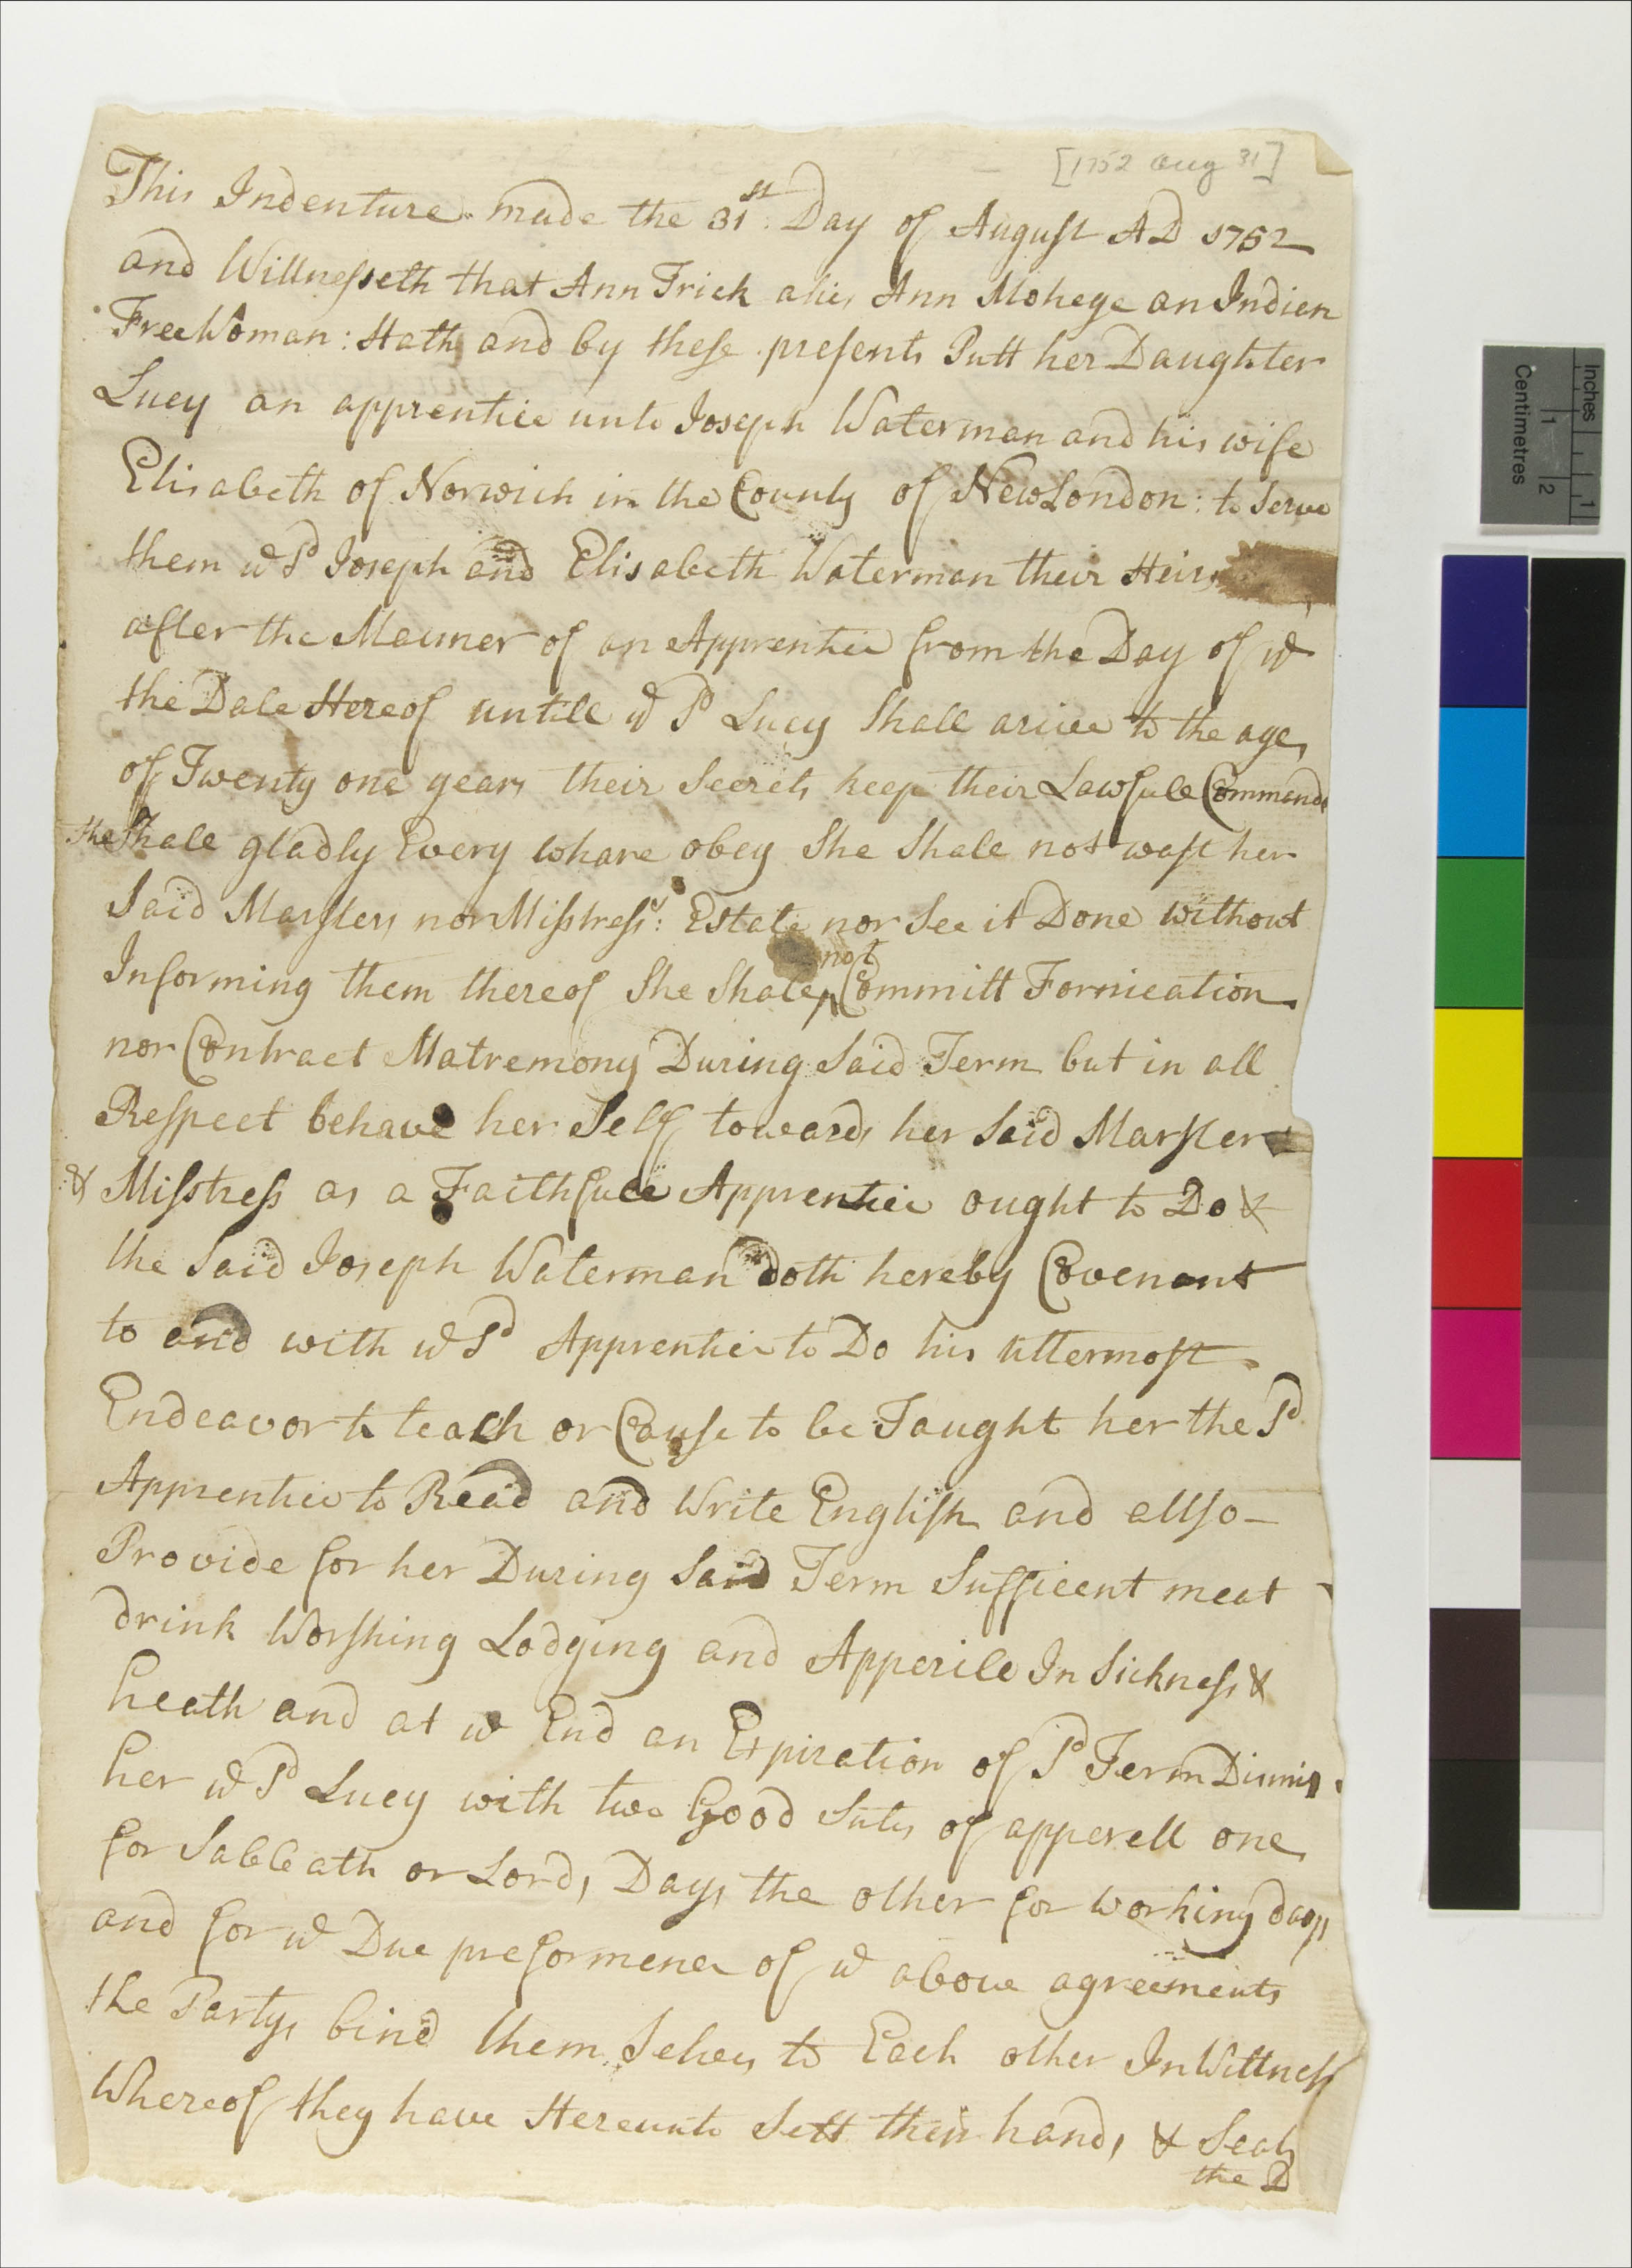 [1752 Aug 31]
This Indenture made the 31st Day of August AD 1752
and Wittnesseth that Ann Trick alis Ann Mohege an Indien
Free Woman: Hath and by these presents Putt her Daughter
Lucy an apprentice unto Joseph Waterman and his wife
Elisabeth of Norwich in the County of New London: to Serve
them ye Sd Joseph and Elisabeth Waterman their Heirs
after the Manner of an Apprentice from the Day of ye
the Date Hereof untill ye Sd Lucy Shall arive to the age
of Twenty one years their Secrets keep their Lawfull Commands
She Shall gladly Every whare obey She Shall not wast her
Said Marsters nor Misstress's: Estate nor See it Done without
not
Informing them thereof She Shall ^ Committ Fornication
nor Contract Matremony During Said Term but in all
Respect behave her Self towards her Said Marster
& Misstress as a Faithfull Apprentice ought to Do &
the Said Joseph Waterman doth hereby Covenant
to and with ye Sd Apprentice to Do his uttermost
Endeavor to teach or Cause to be Taught her the Sd
Apprentice to Read and Write English and allso
Provide for her During Said Term Sufficent meat
drink Worshing Lodging and Apperile In Sickness &
heath and at ye End an Expiration of Sd Term Dismis
her ye Sd Lucy with two Good Sutes of apperell one
for Sabbath or Lords Days the other for working days
and for ye Due preformence of ye above agreements
the Partys bind them Selves to Each other In Wittness
Whereof they have Hereunto Sett their hands & Seals
the D